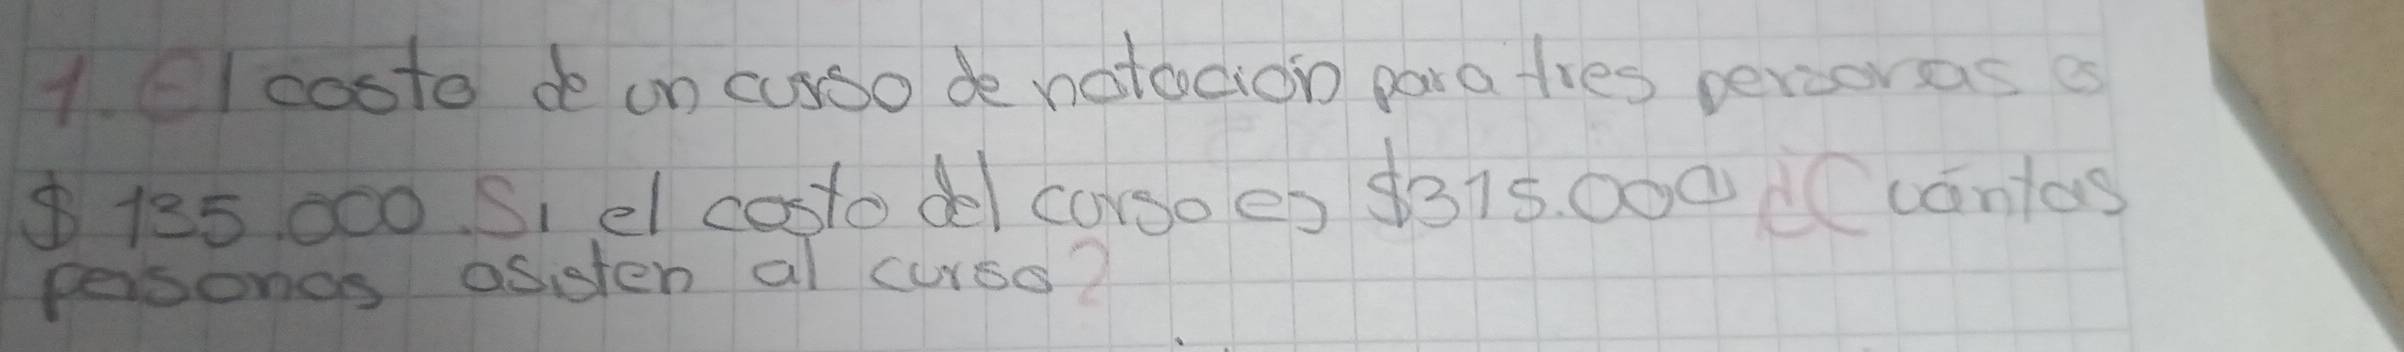 1. El costo de un curso de natación para tres personas es
$ 135.000. Si el costo del curso es $315.000 ¿Cuántas
personas asisten al curso?